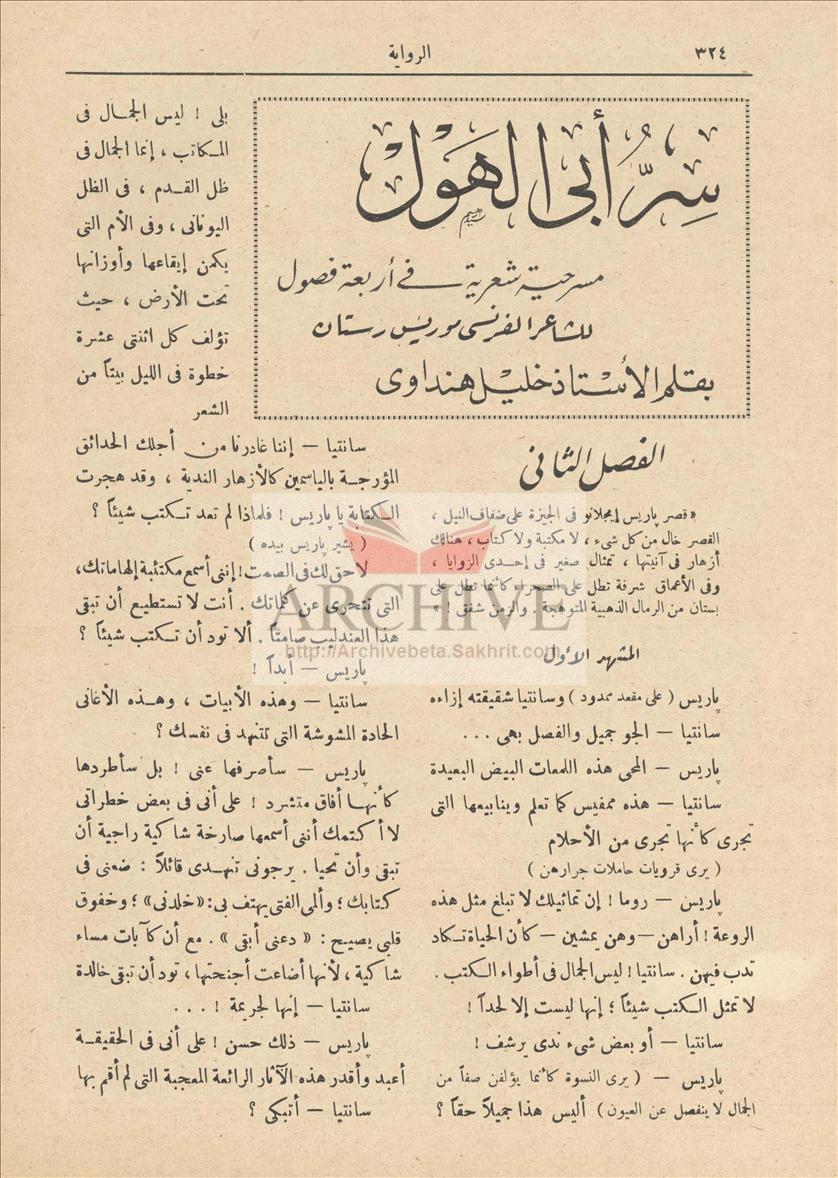 ٣٢٤
الرواية
سِرُّ أبى الهَوْل
مسرحية شعرية في أربعة فصول
للشاعر الفرنسى موريس رستان
بقلم الأستاذ خليل هنداوى
الفصل الثانى
« قصر پاريس إيجلانو فى الجيزة على ضفاف النيل ،
القصر خال من كل شىء ، لا مكتبة ولا كتاب ، هنالك
أزهار فى آنيتها ، تمثال صغير فى إحدى الزوايا ،
وفى الأعماق شرفة تطل على الصحراء كأنما تطل على
بستان من الرمال الذهبية المتوهجة . والزمن شفق ! »
المشهد الأول
پاريس ( على مقعد ممدود ) وسانتيا شقيقته إزاءه
سانتيا — الجو جميل والفصل بهى . . .
پاريس — المحى هذه اللمعات البيض البعيدة
سانتيا — هذه ممفيس كما تعلم وينابيعها التى
تجرى كأنها تجرى من الأحلام
( يرى قرويات حاملات جرارهن )
پاريس — روما ! إن تماثيلك لا تبلغ مثل هذه
الروعة ! أراهن — وهن يمشين — كأن الحياة تكاد
تدب فيهن . سانتيا ! ليس الجمال فى أطواء الكتب .
لا تمثل الكتب شيئاً ؛ إنها ليست إلا لحداً !
سانتيا — أو بعض شىء ندى يرشف !
پاريس — ( يرى النسوة كأنما يؤلفن صفاً من
الجمال لا ينفصل عن العيون ) أليس هذا جميلاً حقاً ؟
بلى ! ليس الجمال فى
المكاتب ، إنما الجمال فى
ظل القدم ، فى الظل
اليونانى ، وفى الأم التى
يكمن إيقاعها وأوزانها
تحت الأرض ، حيث
تؤلف كل اثنتى عشرة
خطوة فى الليل بيتاً من
الشعر
سانتيا — إننا غادرنا من أجلك الحدائق
المؤرجة بالياسمين كالأزهار الندية ، وقد هجرت
الكتابة يا پاريس ! فلماذا لم تعد تكتب شيئاً ؟
( يشير پاريس بيده )
لا حق لك فى الصمت ! إننى أسمع مكتئبة إلهاماتك ،
التى تتحرى عن كلماتك . أنت لا تستطيع أن تبقى
هذا العندليب صامتاً . ألا تود أن تكتب شيئاً ؟
پاريس — أبداً !
سانتيا — وهذه الأبيات ، وهذه الأغانى
الحادة المشوشة التى تتنهد فى نفسك ؟
پاريس — سأصرفها عنى ! بل سأطردها
كأنها أفاق متشرد ! على أنى فى بعض خطراتى
لا أكتمك أننى أسمعها صارخة شاكية راجية أن
تبقى وأن تحيا . يرجونى تنهدى قائلاً : ضعنى فى
كتابك ؛ وألمى الفتى يهتف بى : « خلدنى » ؛ وخفوق
قلبى يصيح : « دعنى أبقى » . مع أن كآبات مساء
شاكية ، لأنها أضاعت أجنحتها ، تود أن تبقى خالدة
سانتيا — إنها لجريمة ! . . .
پاريس — ذلك حسن ! على أنى فى الحقيقة
أعبد وأقدر هذه الآثار الرائعة المعجبة التى لم أقم بها
سانتيا — أتبكى ؟
ARCHIVE
http://Archivebeta.Sakhrit.com